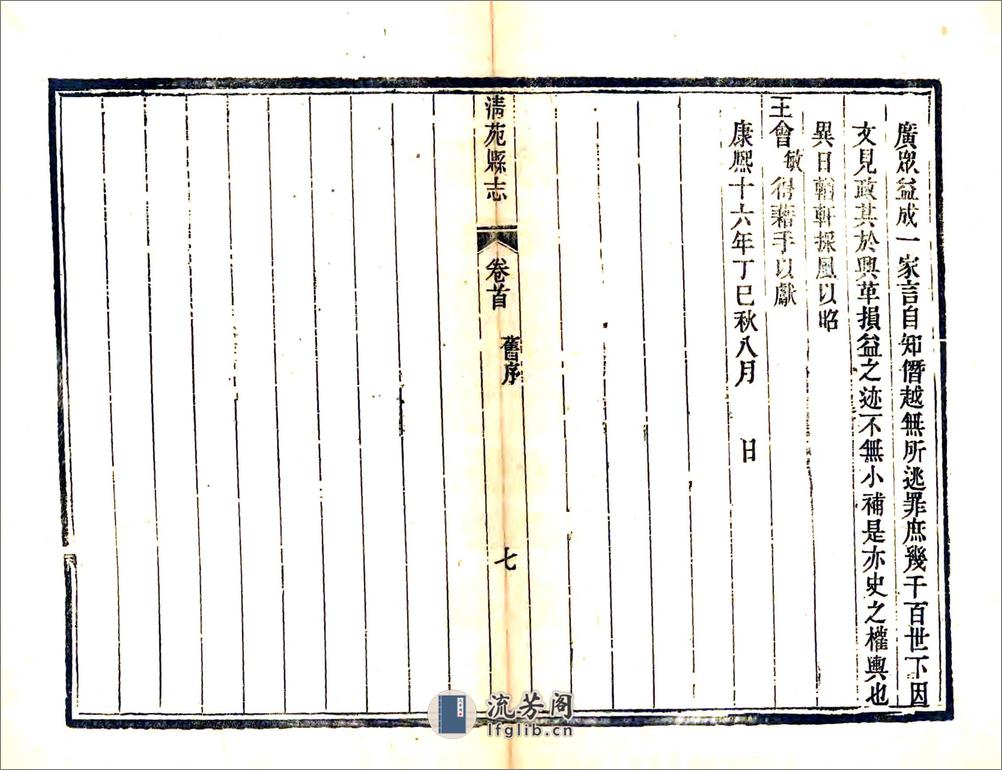 廣眾益成一家言自知僭越無所逃罪庶幾千百世下因
文見政其於興革損益之迹不無小補是亦史之權輿也
異日輶軒採風以昭
王會敏得藉手以獻
康熙十六年丁巳秋八月 日
清苑縣志 卷首 舊序 七
流芳阁
lfglib.cn